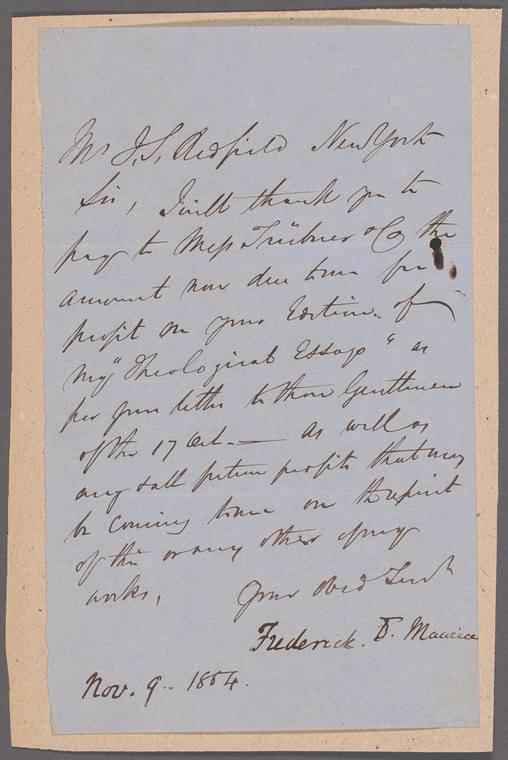 Mr J. S. Redfield New York
Sir, I will thank you to
pay to Messrs Trübner & Co the
amount now due to me for
profit on your Edition of
my "Theological Essays" as
per your letter to those Gentlemen
of the 17 Oct. — as well as
any & all future profits that may
be coming to me on the reprint
of this or any other of my
works,
Your obed Servt
Frederick. D. Maurice
Nov. 9. 1854.